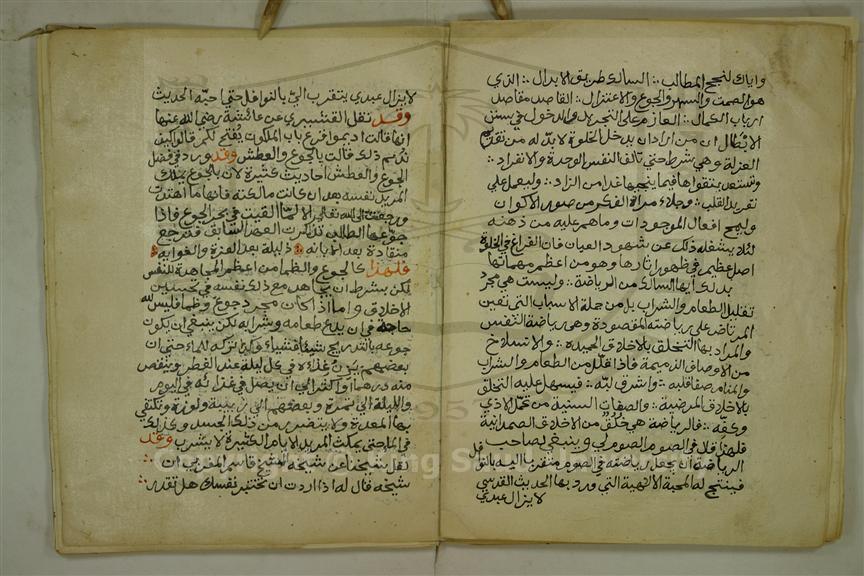 واياك لنجح المطالب ∴ السالك طريق الابدال ∴ الذي
هو الصمت والسهر والجوع والاعتزال ∴ القاصد مقاصد
ارباب الكمال ∴ العازم على التجريد والدخول في سنن
الابطال ان من اراد ان يدخل الخلوة لابد له من تقديم
العزلة وهي شرط حتى تالف النفس الوحدة والانفراد ∴
وتستعد بتقواها فيما ينجيها غدا من الزاد ∴ وليعمل على
تفريد القلب ∴ وجلاء مراة الفكر من صور الاكوان
وليمح افعال الموجودات وما هم عليه من ذهنه
لئلا يشغله ذلك عن شهود العيان فان الفراغ في الخلوة
اصل عظيم في ظهور اثارها وهو من اعظم مهماتها
بدلك ايها السالك من الرياضة ∴ وليست هي مجرد
تقليل الطعام والشراب بل من جملة الاسباب التي تعين
المرتاض على رياضته المقصودة وهي رياضة النفس
والمراد بها التخلق بالاخلاق الحميدة ∴ والانسلاخ
من الاوصاف الذميمة فاذا قلل من الطعام والشراب
والمنام صفا قلبه ∴ واشرق لبه ∴ فيسهل عليه التخلق
بالاخلاق المرضية ∴ والصفات السنية من تحمل الاذى
وعفه ∴ فالرياضة هي خلق من الاخلاق الصمدانية
فلهذا قال في الصوم الصوم لي وينبغي لصاحب
الرياضة ان يجعل رياضته في الصوم متقربا اليه بالنوافل
فينتج له المحبة الالهية التي ورد بها الحديث القدسي
لايزال عبدي
لايزال عبدي يتقرب الي بالنوافل حتى احبه الحديث
وقد نقل القشيري عن عائشة رضي الله عنها
انها قالت اديموا قرع باب الملكوت يفتح لكم قالوا كيف
نديم ذلك قالت بالجوع والعطش وقد ورد في فضل
الجوع والعطش احاديث كثيرة لان بالجوع يملك
المريد نفسه بعد ان كانت مالكته فانها ما اهتدت
ورجعت الى الله تعالى الا لما القيت في بحر الجوع فاذا
جوعها الطالب تذكرت العهد السابق فترجع
منقادة بعد الاباية ذليلة بعد العزة والغواية
فلهذا كان الجوع والظما من اعظم المجاهدة للنفس
لكن بشرط ان يجاهد مع ذلك نفسه في تحسين
الاخلاق واما اذا كان مجرد جوع وظما فليس لله
حاجة في ان يدع طعامه وشرابه لكن ينبغي ان يكون
جوعه بالتدريج شيئا فشيئا وكيفية ذلك حتى ان
بعضهم يزن غذاءه في كل ليلة عند الفطر وينقص
منه درهما واكثر الى ان يصل في غذائه في اليوم
والليلة الى تمرة وبعضهم الى زبيبة ولوزة وتكتفي
بها المعدة ولا يتضرر من ذلك الجسد وكذلك
في الماء حتى يمكث المريد الايام الكثيرة لا يشرب وقد
نقل شيخنا عن شيخه الشيخ قاسم المغربي ان
شيخه قال له اذا اردت ان تختبر نفسك هل تقدر